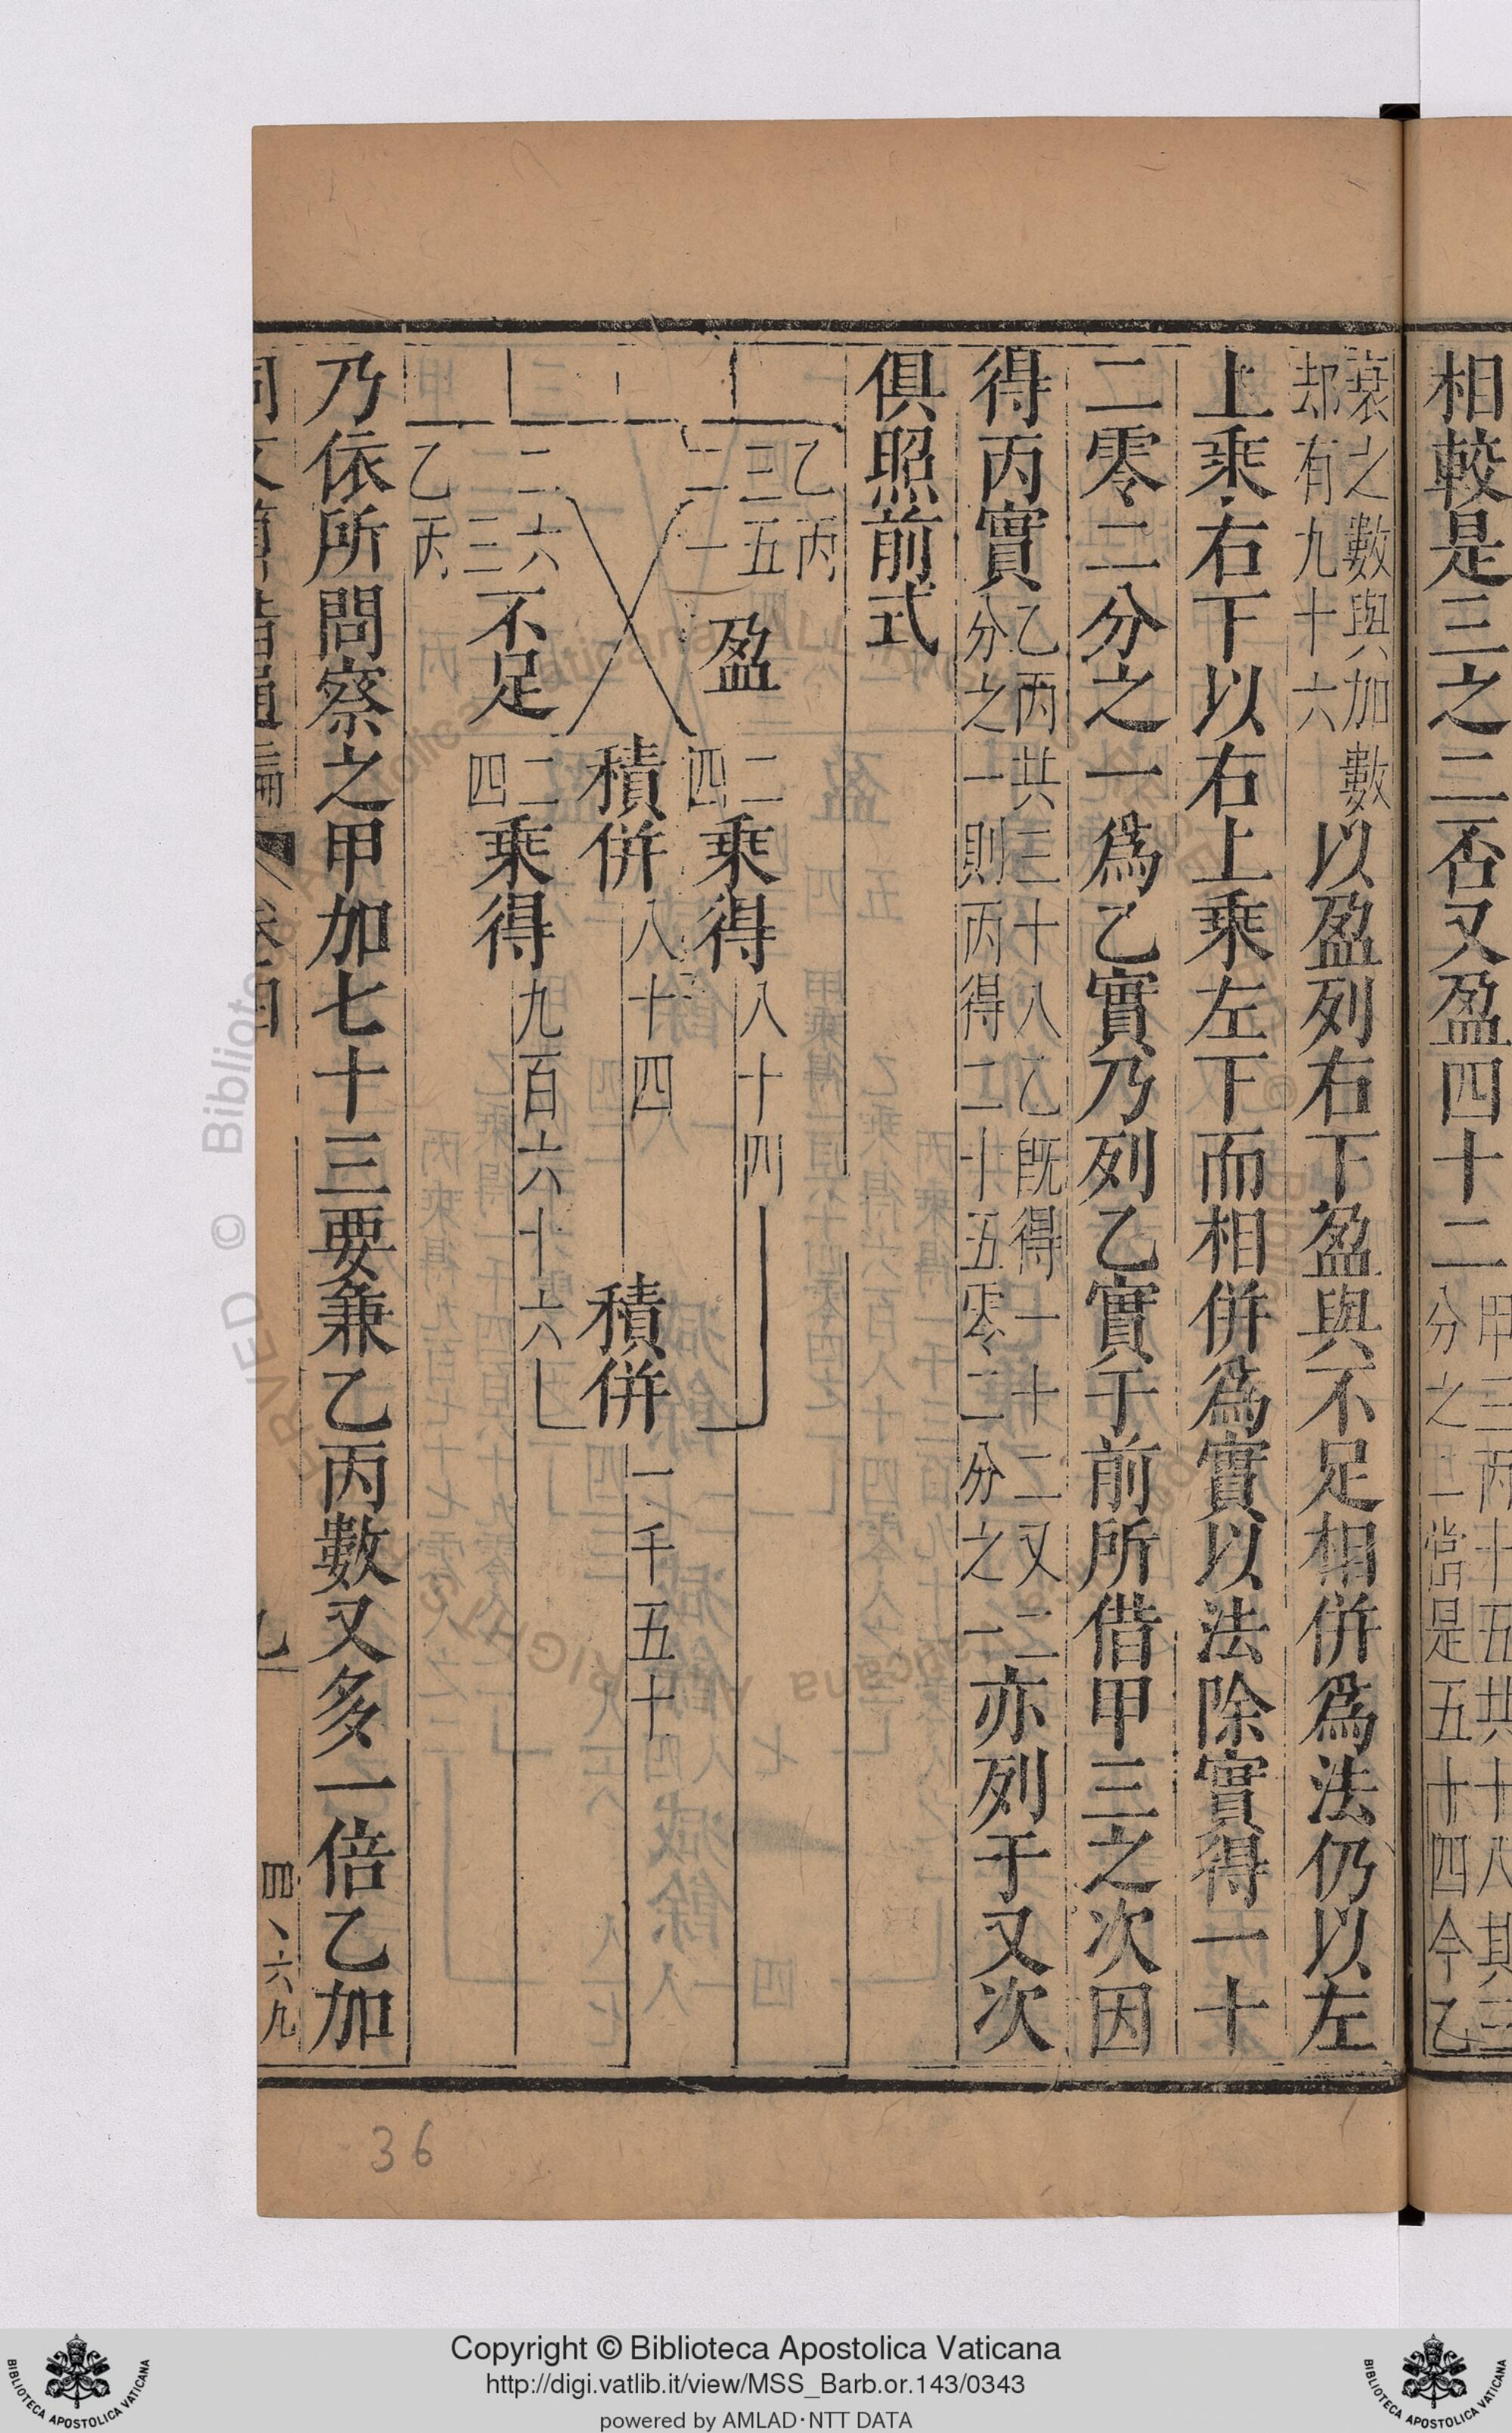 相較是三之二否又盈四十二甲三丙十五共十八其三
分之二當是五十四今乙
衰之數與加數
却有九十六
以盈列右下盈與不足相併爲法仍以左
上乘右下以右上乘左下而相併爲實以法除實得一十
二零二分之一爲乙實乃列乙實于前所借甲三之次因
得丙實乙丙共三十八乙既得一十二又二
分之一則丙得二十五零二分之一亦列于又次
俱照前式
乙丙
三五
二一
盈
二四乘得八十四
積併八十四
積併一千五十
二六
三
不足
二四乘得九百六十六
乙丙
乃依所問察之甲加七十三要兼乙丙數又多一倍乙加
同文算指通編
卷四
九
四、六九
36
Copyright © Biblioteca Apostolica Vaticana
http://digi.vatlib.it/view/MSS_Barb.or.143/0343
powered by AMLAD·NTT DATA
BIBLIOTECA APOSTOLICA VATICANA
BIBLIOTECA APOSTOLICA VATICANA